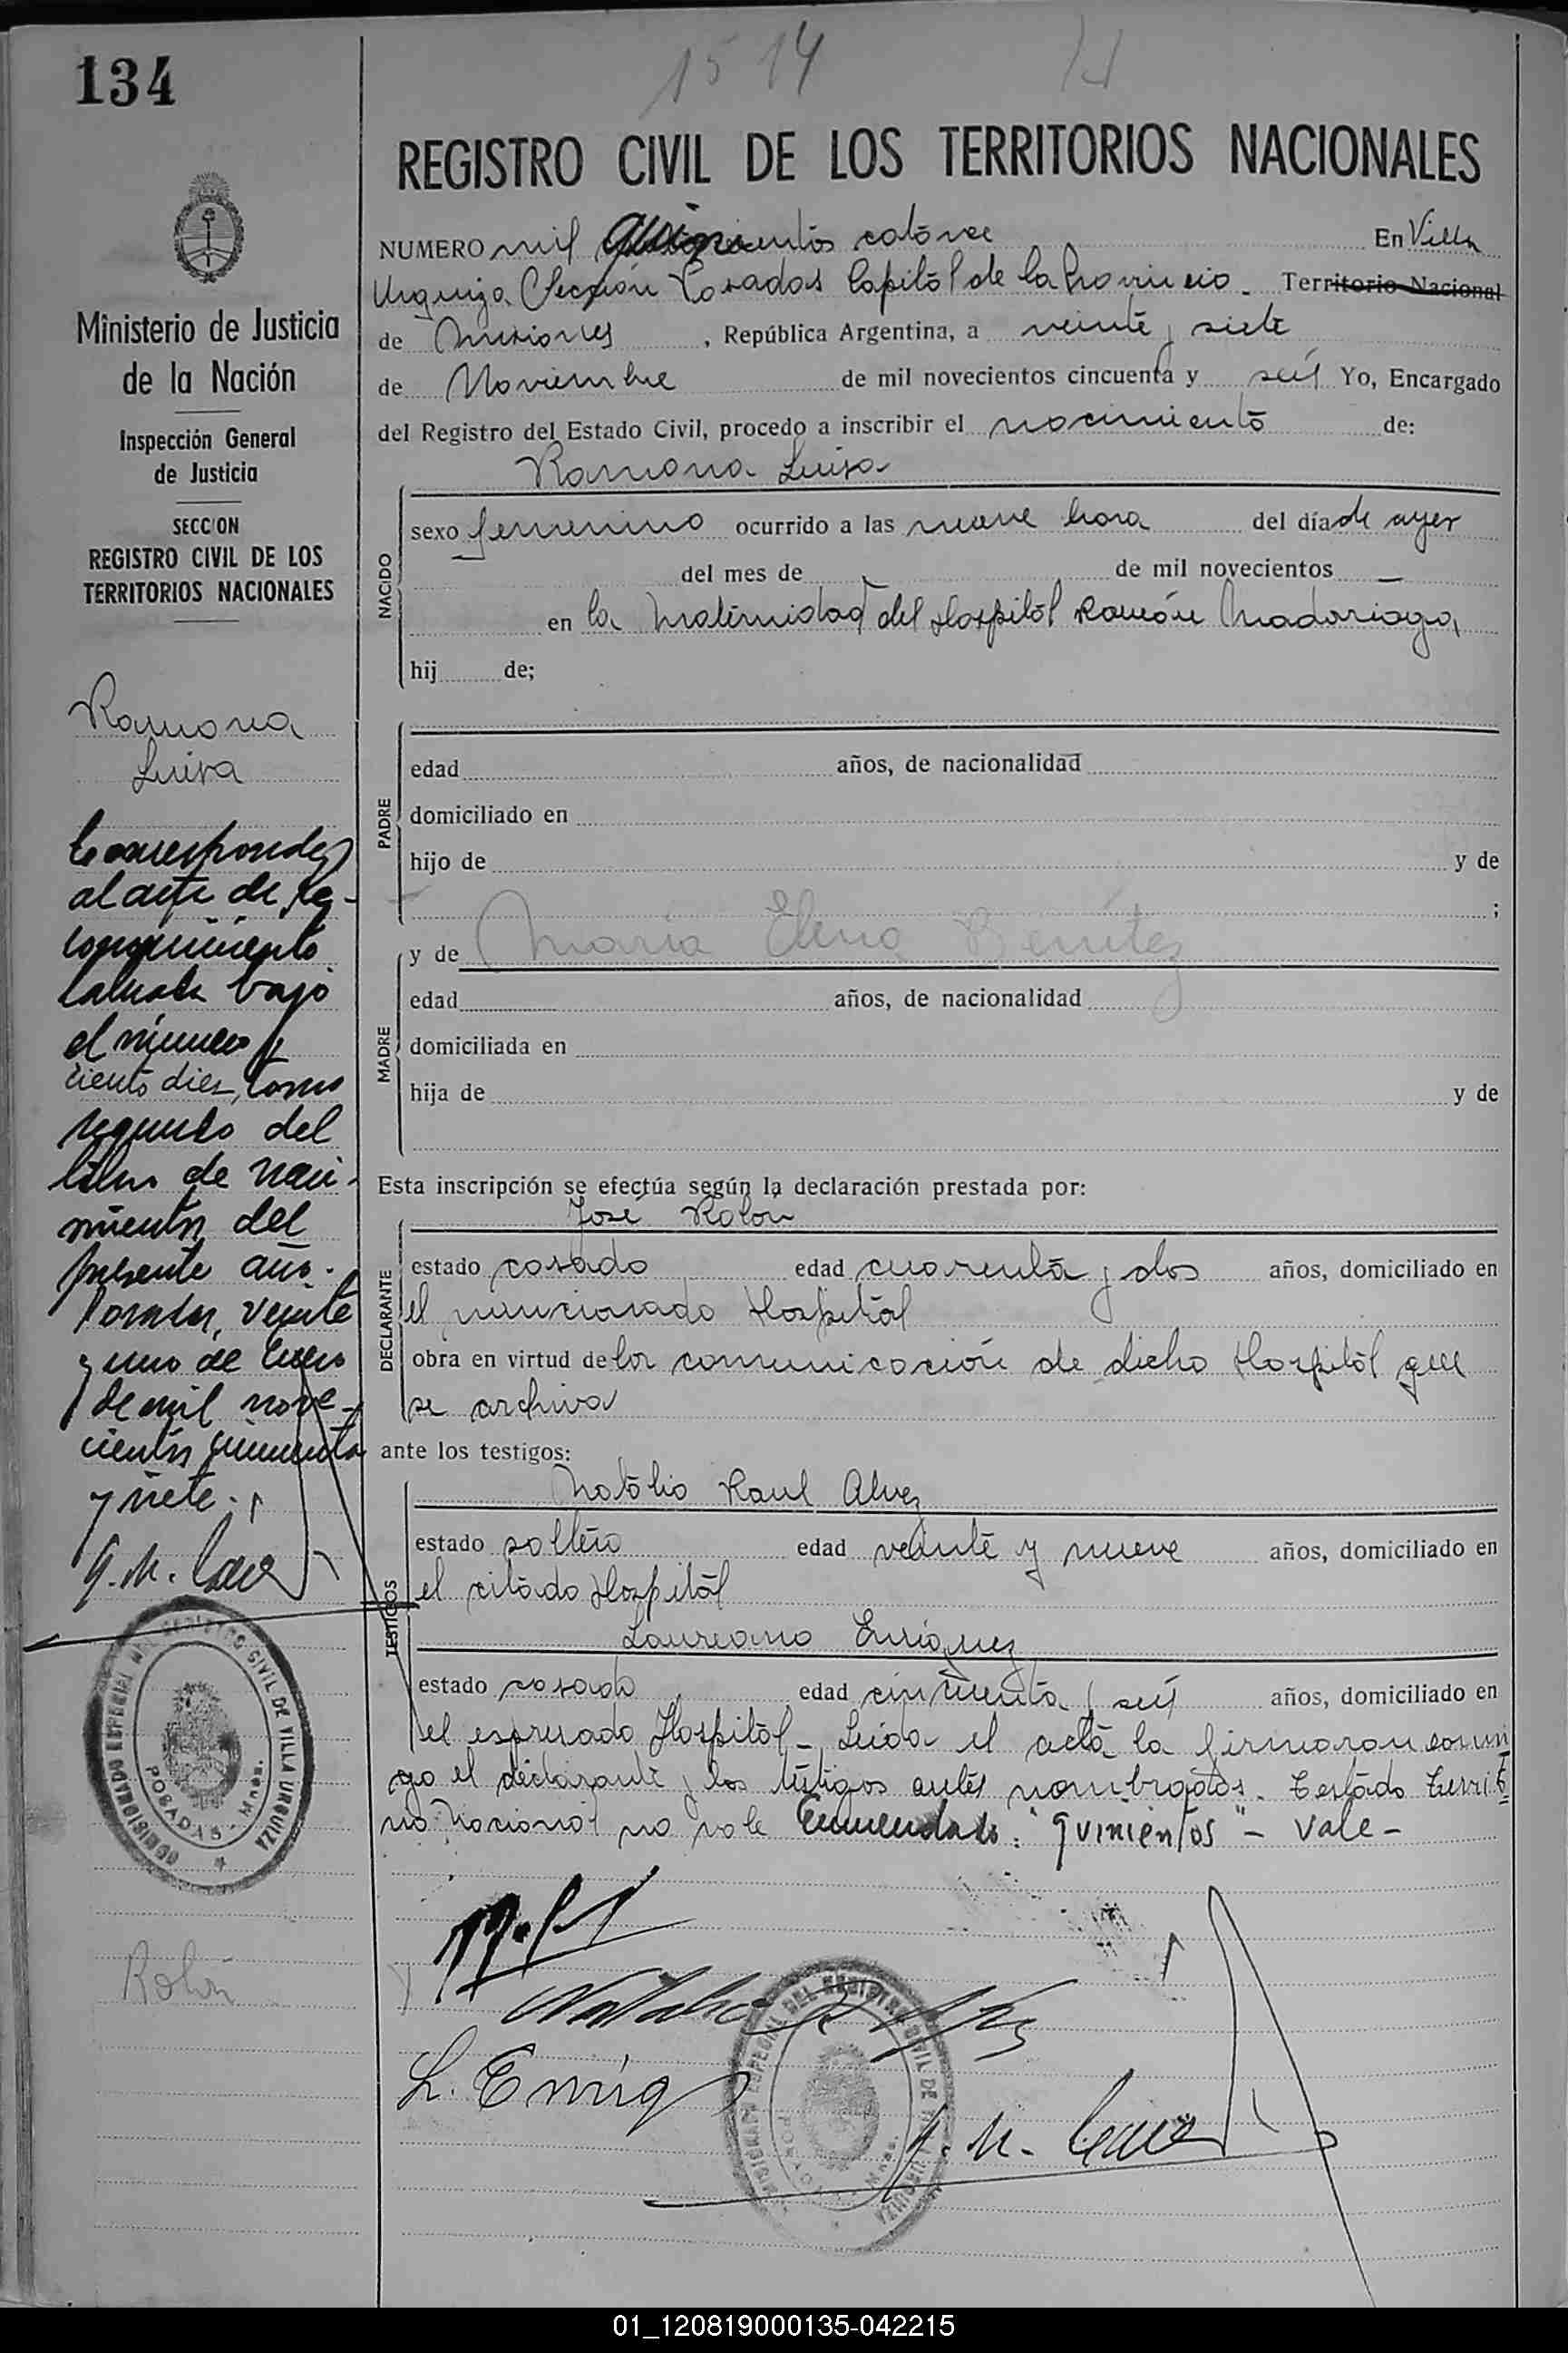 134
1514
Ministerio de Justicia
de la Nación
Inspección General
de Justicia
SECCION
REGISTRO CIVIL DE LOS
TERRITORIOS NACIONALES
Ramona
Luisa
Corresponde
al acta de Re-
conocimiento
labrada bajo
el número
ciento diez, tomo
segundo del
libro de naci-
mientos del
presente año.
Posadas, veinte
y uno de Enero
de mil nove-
cientos cincuenta
y siete.
COMISIONADO ESPECIAL DEL REGISTRO CIVIL DE VILLA URQUIZA
POSADAS - Mnes.
Rolón
REGISTRO CIVIL DE LOS TERRITORIOS NACIONALES
NUMERO mil quinientos catorce En Villa
Urquiza Sección Posadas Capital de la Provincia - Territorio Nacional
de Misiones, República Argentina, a veinte y siete
de Noviembre de mil novecientos cincuenta y seis Yo, Encargado
del Registro del Estado Civil, procedo a inscribir el nacimiento de:
Ramona Luisa
NACIDO
sexo femenino ocurrido a las nueve hora del día de ayer
del mes de de mil novecientos —
en la Maternidad del Hospital Ramón Madariaga,
hij de;
PADRE
edad años, de nacionalidad
domiciliado en
hijo de y de
;
y de Maria Elena Benitez
MADRE
edad años, de nacionalidad
domiciliada en
hija de y de
Esta inscripción se efectúa según la declaración prestada por:
José Rolón
DECLARANTE
estado casado edad cuarenta y dos años, domiciliado en
el mencionado Hospital
obra en virtud de la comunicación de dicho Hospital que
se archiva
ante los testigos:
Natalio Raul Alvez
TESTIGOS
estado soltero edad veinte y nueve años, domiciliado en
el citado Hospital
Laureano Enriquez
estado casado edad cincuenta y seis años, domiciliado en
el espresado Hospital - Leida el acta la firmaron conmi
go el declarante y los testigos antes nombrados. Testado Territo
rio Nacional no vale Enmendado: "quinientos" - Vale -
L. Enriq
COMISIONADO ESPECIAL DEL REGISTRO CIVIL DE VILLA URQUIZA
POSADAS - Mnes.
01_120819000135-042215